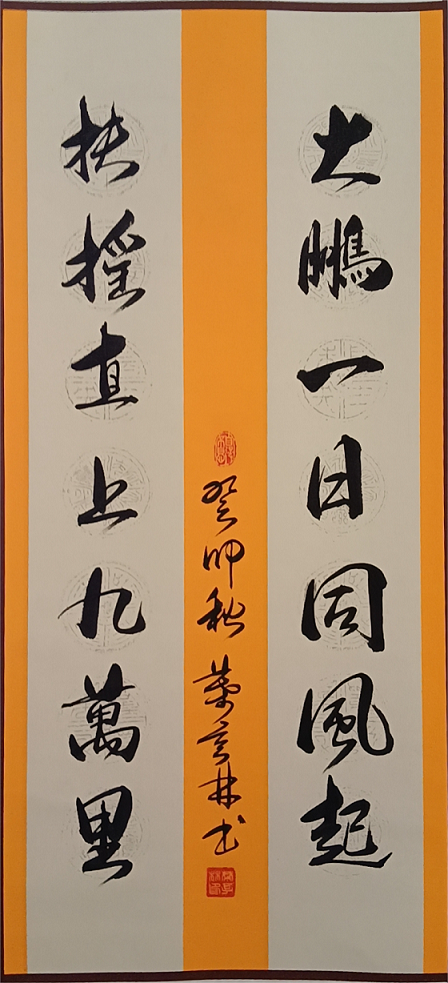 大鵬一日同風起
扶摇直上九萬里
癸卯秋 葉玄林书